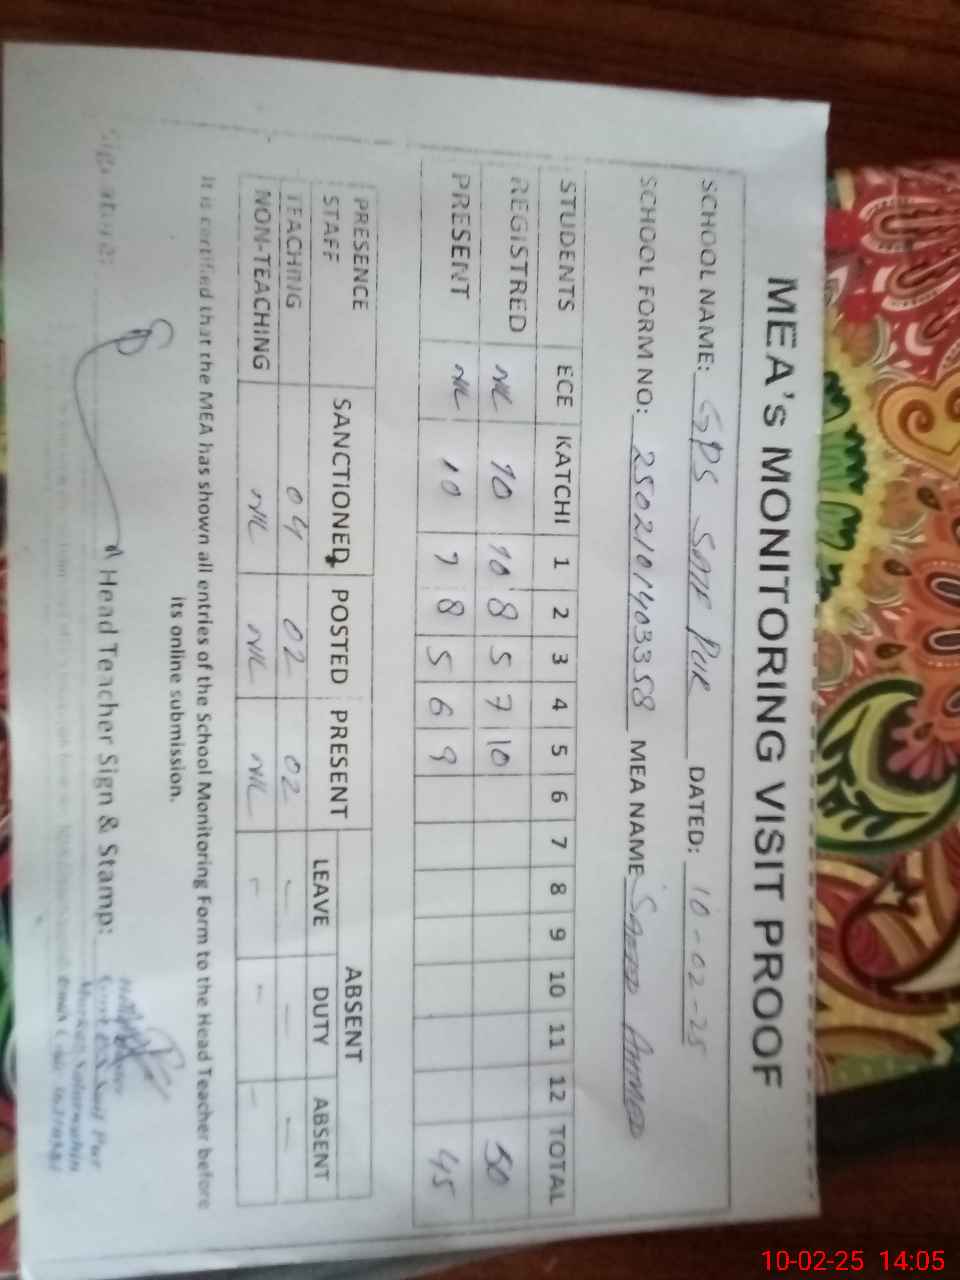 MEA's MONITORING VISIT PROOF
SCHOOL NAME: GPS SAIF PUR DATED: 10-02-25
SCHOOL FORM NO: 2502101403358 MEA NAME SAEED AHMED
STUDENTS ECE KATCHI 1 2 3 4 5 6 7 8 9 10 11 12 TOTAL
REGISTRED NIL 10 10 8 5 7 10 50
PRESENT NIL 10 7 8 5 6 9 45
PRESENCE STAFF SANCTIONED POSTED PRESENT ABSENT
LEAVE DUTY ABSENT
TEACHING 04 02 02 - - -
NON-TEACHING NIL NIL NIL - - -
It is certified that the MEA has shown all entries of the School Monitoring Form to the Head Teacher before
its online submission.
Signature: Head Teacher Sign & Stamp:
10-02-25 14:05